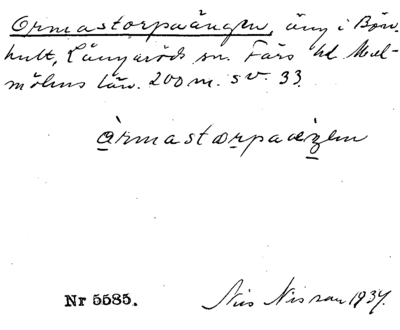 Ormastorpaängen, äng i Bön-
hult, Långaröds sn. Färs hd. Mal-
möhus län. 200 m. sv. 33.
òrmastorpaeŋen
Nr 5585.
Nils Nilsson 1934.